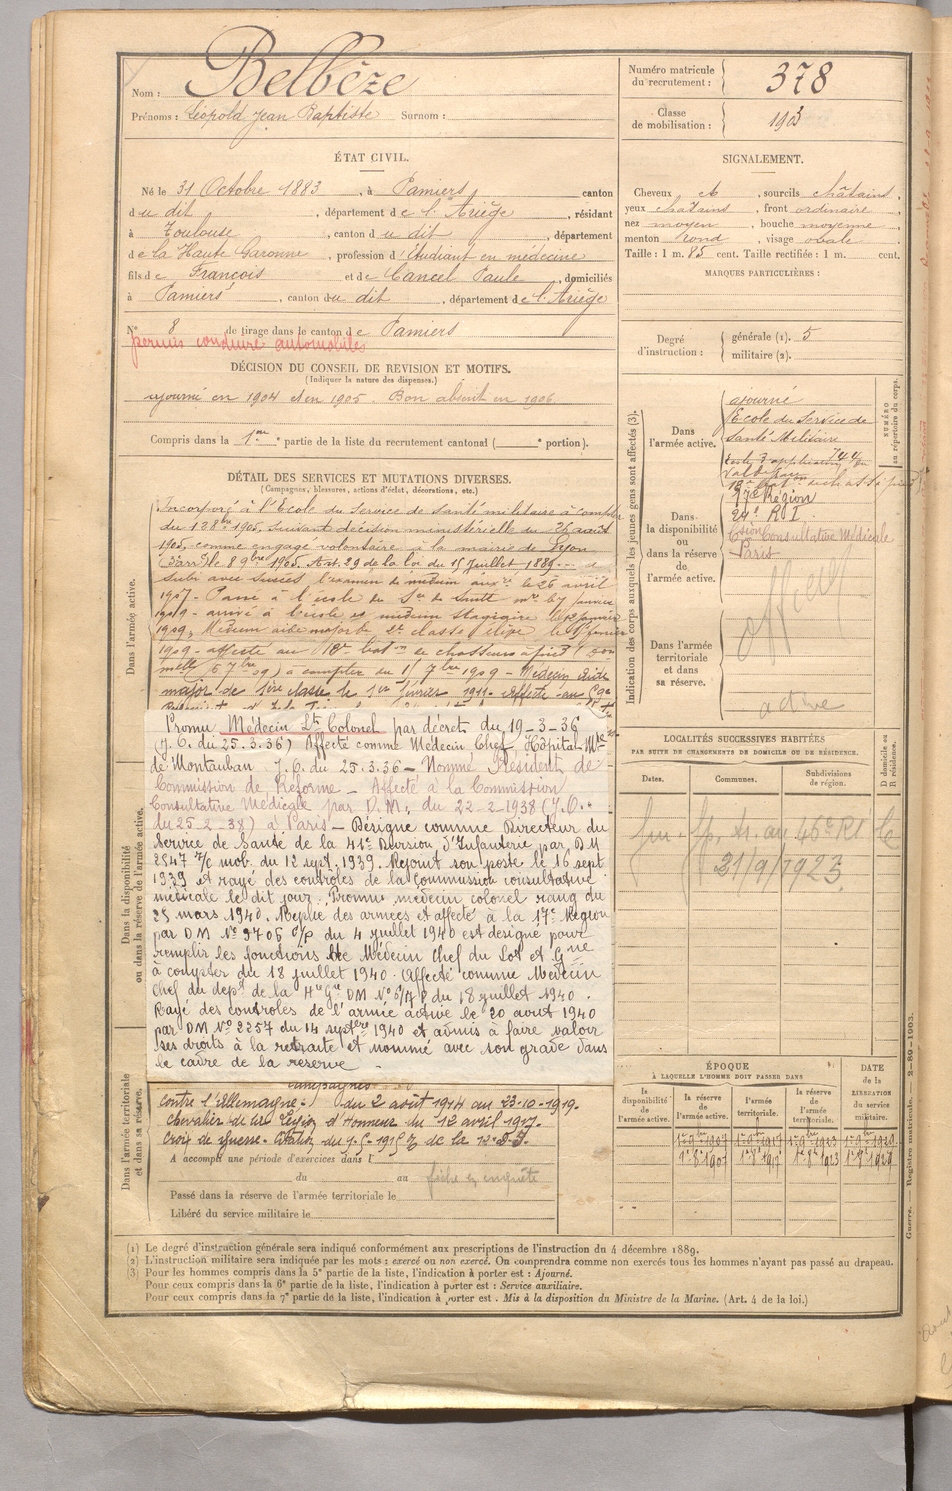 Nom : Belbèze
Prénoms : Léopold Jean Baptiste Surnom :
ÉTAT CIVIL.
Né le 31 Octobre 1883, à Pamiers, canton
du dit, département de l'Ariège, résidant
à Toulouse, canton du dit, département
de la Haute Garonne, profession d'Étudiant en médecine
fils de François et de Cancel Paule, domiciliés
à Pamiers, canton du dit, département de l'Ariège
N° 8 de tirage dans le canton de Pamiers
permis conduire automobiles
DÉCISION DU CONSEIL DE REVISION ET MOTIFS.
(Indiquer la nature des dispenses.)
ajourné en 1904 et en 1905. Bon absent en 1906
Compris dans la 1re partie de la liste du recrutement cantonal ( e portion).
DÉTAIL DES SERVICES ET MUTATIONS DIVERSES.
(Campagnes, blessures, actions d'éclat, décorations, etc.)
Dans l'armée active.
Incorporé à l'École du Service de Santé militaire à compter
du 1er 8bre 1905. Suivant décision ministérielle du 26 août
1905, comme engagé volontaire à la mairie de Lyon
(3e arrt) le 8 9bre 1905. Art. 29 de la loi du 15 Juillet 1889. a
subi avec succès l'examen de médecin auxre le 26 avril
1907. Passé à l'école du Sce de Santé mre le 7 janvier
1909. arrivé à l'école es médecin stagiaire le 12 janvier
1909. Médecin aide major de 2e classe élève le 1er février
1909 affecté au 18e baton de chasseurs à pied
à compter du 1er 7bre 1909. Médecin aide
major de 1ère classe le 1er février 1911. affecté au
Promu Médecin Lt Colonel par décret du 19-3-36
(J.O. du 25.3.36) Affecté comme Médecin Chef, Hôpital Mre
de Montauban J.O. du 25.3.36 – Nommé Président de
Commission de Réforme – Affecté à la Commission
Consultative Médicale par D.M. du 22-2-1938 (J.O.
du 25-2-38) à Paris – Désigné comme Directeur du
Service de Santé de la 41e Division d'Infanterie par DM
2847 7/c mob. du 12 sept. 1939. Rejoint son poste le 16 sept
1939 et rayé des contrôles de la commission consultative
médicale le dit jour. Promu médecin colonel rang du
25 mars 1940. Replié des armées et affecté à la 17e Région
par DM N° 9706 °/P du 4 juillet 1940 est désigné pour
remplir les fonctions de Médecin Chef du Lot et Gne
à compter du 18 juillet 1940. Affecté comme Médecin
Chef du dept de la Hte Gne DM du 18 juillet 1940.
Rayé des contrôles de l'armée active le 20 août 1940
par DM N° 2257 du 14 septbre 1940 et admis à faire valoir
ses droits à la retraite et nommé avec son grade dans
le cadre de la réserve.
Dans la disponibilité
ou dans la réserve de l'armée active.
Dans l'armée territoriale
et dans sa réserve.
Campagnes
Contre l'Allemagne : du 2 août 1914 au 23-10-1919.
Chevalier de la Légion d'Honneur du 12 avril 1917.
Croix de guerre.
A accompli une période d'exercices dans l
du au fiche en enquête
Passé dans la réserve de l'armée territoriale le
Libéré du service militaire le
Numéro matricule du recrutement : 378
Classe de mobilisation : 1903
SIGNALEMENT.
Cheveux et, sourcils châtains,
yeux châtains, front ordinaire,
nez moyen, bouche moyenne,
menton rond, visage ovale
Taille : 1 m. 85 cent. Taille rectifiée : 1 m. cent.
MARQUES PARTICULIÈRES :
Degré d'instruction : générale (1). 5
militaire (2).
Indication des corps auxquels les jeunes gens sont affectés (3).
NUMÉRO au répertoire du corps.
Dans l'armée active.
ajourné
École du Service de
Santé Militaire
744
Dans la disponibilité ou dans la réserve de l'armée active.
17e Région
24e R I.
Csion Consultative Médicale
Paris
Dans l'armée territoriale et dans sa réserve.
officier
active
LOCALITÉS SUCCESSIVES HABITÉES
PAR SUITE DE CHANGEMENTS DE DOMICILE OU DE RÉSIDENCE.
Dates. Communes. Subdivisions de région. D domicile ou R résidence.
au 46e RI
21/9/1923.
ÉPOQUE
À LAQUELLE L'HOMME DOIT PASSER DANS
la disponibilité de l'armée active.
la réserve de l'armée active.
l'armée territoriale.
la réserve de l'armée territoriale.
DATE de la LIBÉRATION du service militaire.
1er 8bre 1907 1er 8bre 1917 1er 8bre 1923 1er 8bre 1929
(1) Le degré d'instruction générale sera indiqué conformément aux prescriptions de l'instruction du 4 décembre 1889.
(2) L'instruction militaire sera indiquée par les mots : exercé ou non exercé. On comprendra comme non exercés tous les hommes n'ayant pas passé au drapeau.
(3) Pour les hommes compris dans la 5e partie de la liste, l'indication à porter est : Ajourné.
Pour ceux compris dans la 6e partie de la liste, l'indication à porter est : Service auxiliaire.
Pour ceux compris dans la 7e partie de la liste, l'indication à porter est : Mis à la disposition du Ministre de la Marine. (Art. 4 de la loi.)
Guerre. — Registre matricule. — 2-89-1903.